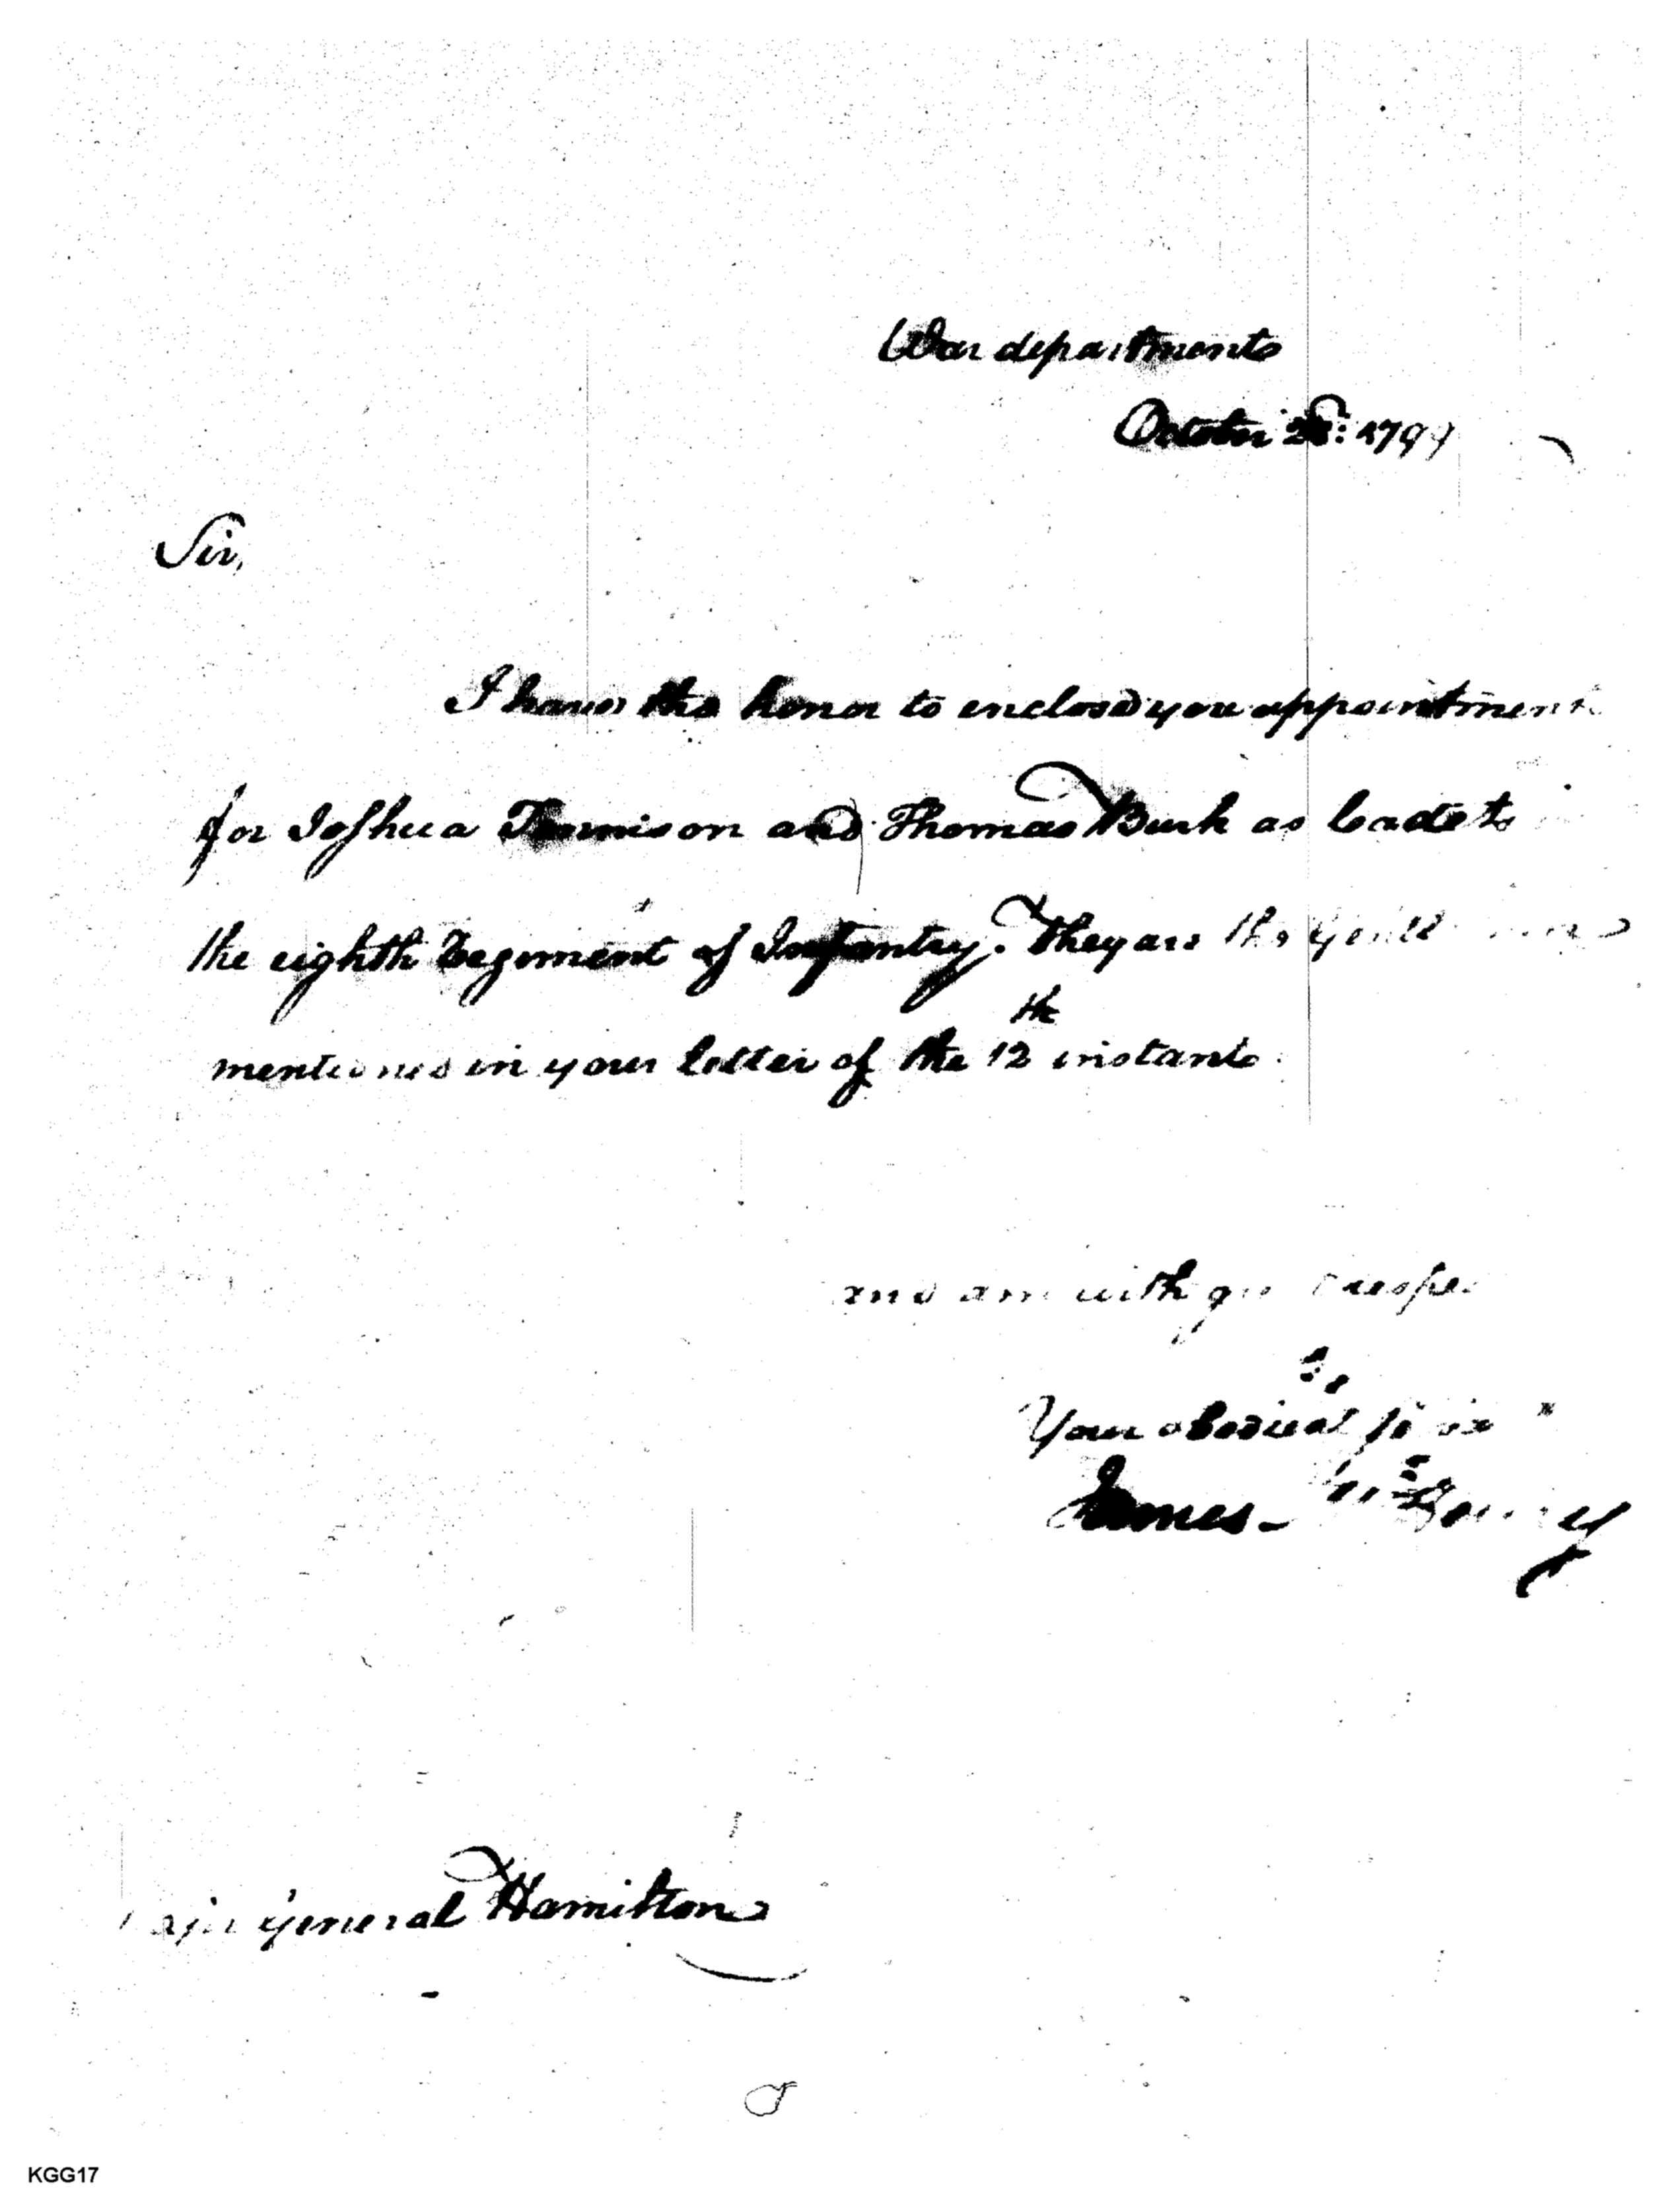 War department
October 1799
Sir,
I have the honor to enclose you appointment
for Joshua Tennison and Thomas Burk as Cadets
the eighth Regiment of Infantry. They are the
mentioned in your letter of the 12th instant.
and am with respe
Your obedient
James McHenry
General Hamilton
KGG17